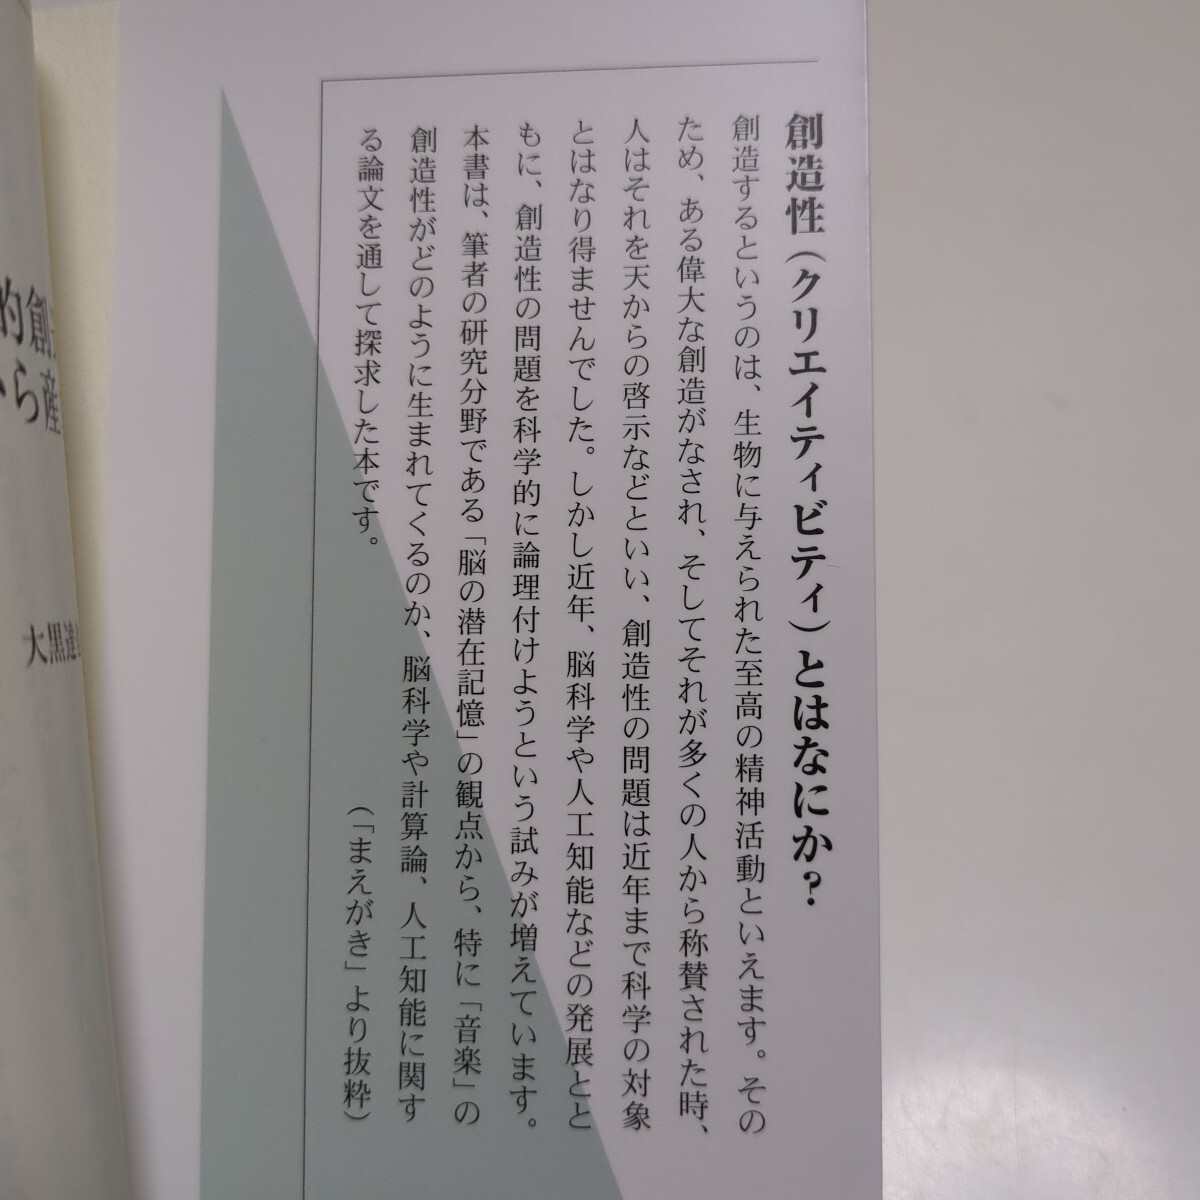 創造性（クリエイティビティ）とはなにか？
創造するというのは、生物に与えられた至高の精神活動といえます。その
ため、ある偉大な創造がなされ、そしてそれが多くの人から称賛された時、
人はそれを天からの啓示などといい、創造性の問題は近年まで科学の対象
とはなり得ませんでした。しかし近年、脳科学や人工知能などの発展とと
もに、創造性の問題を科学的に論理付けようという試みが増えています。
本書は、筆者の研究分野である「脳の潜在記憶」の観点から、特に「音楽」の
創造性がどのように生まれてくるのか、脳科学や計算論、人工知能に関す
る論文を通して探求した本です。
（「まえがき」より抜粋）
的創
ら産
大黒達